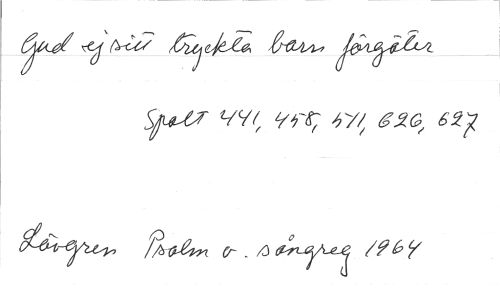 Gud ej sitt tryckta barn förgäter
Spalt 441, 458, 511, 626, 627
Lövgren Psalm o. sångreg 1964